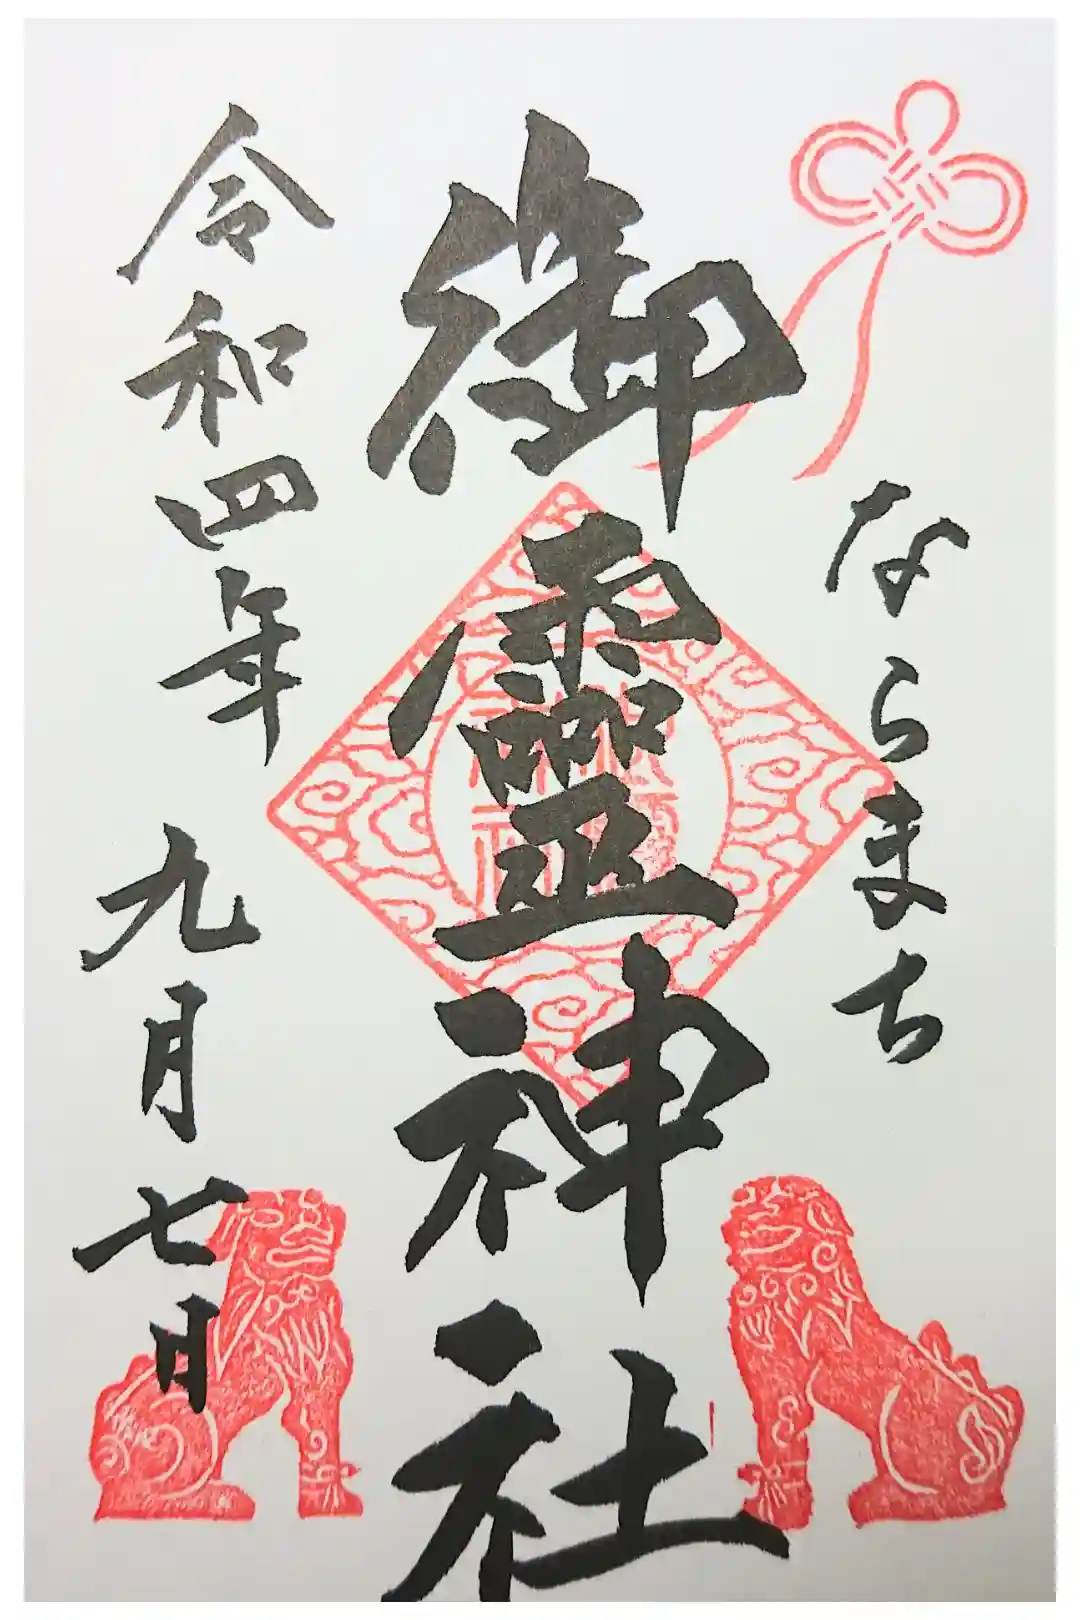 ならまち
御靈神社
令和四年 九月七日